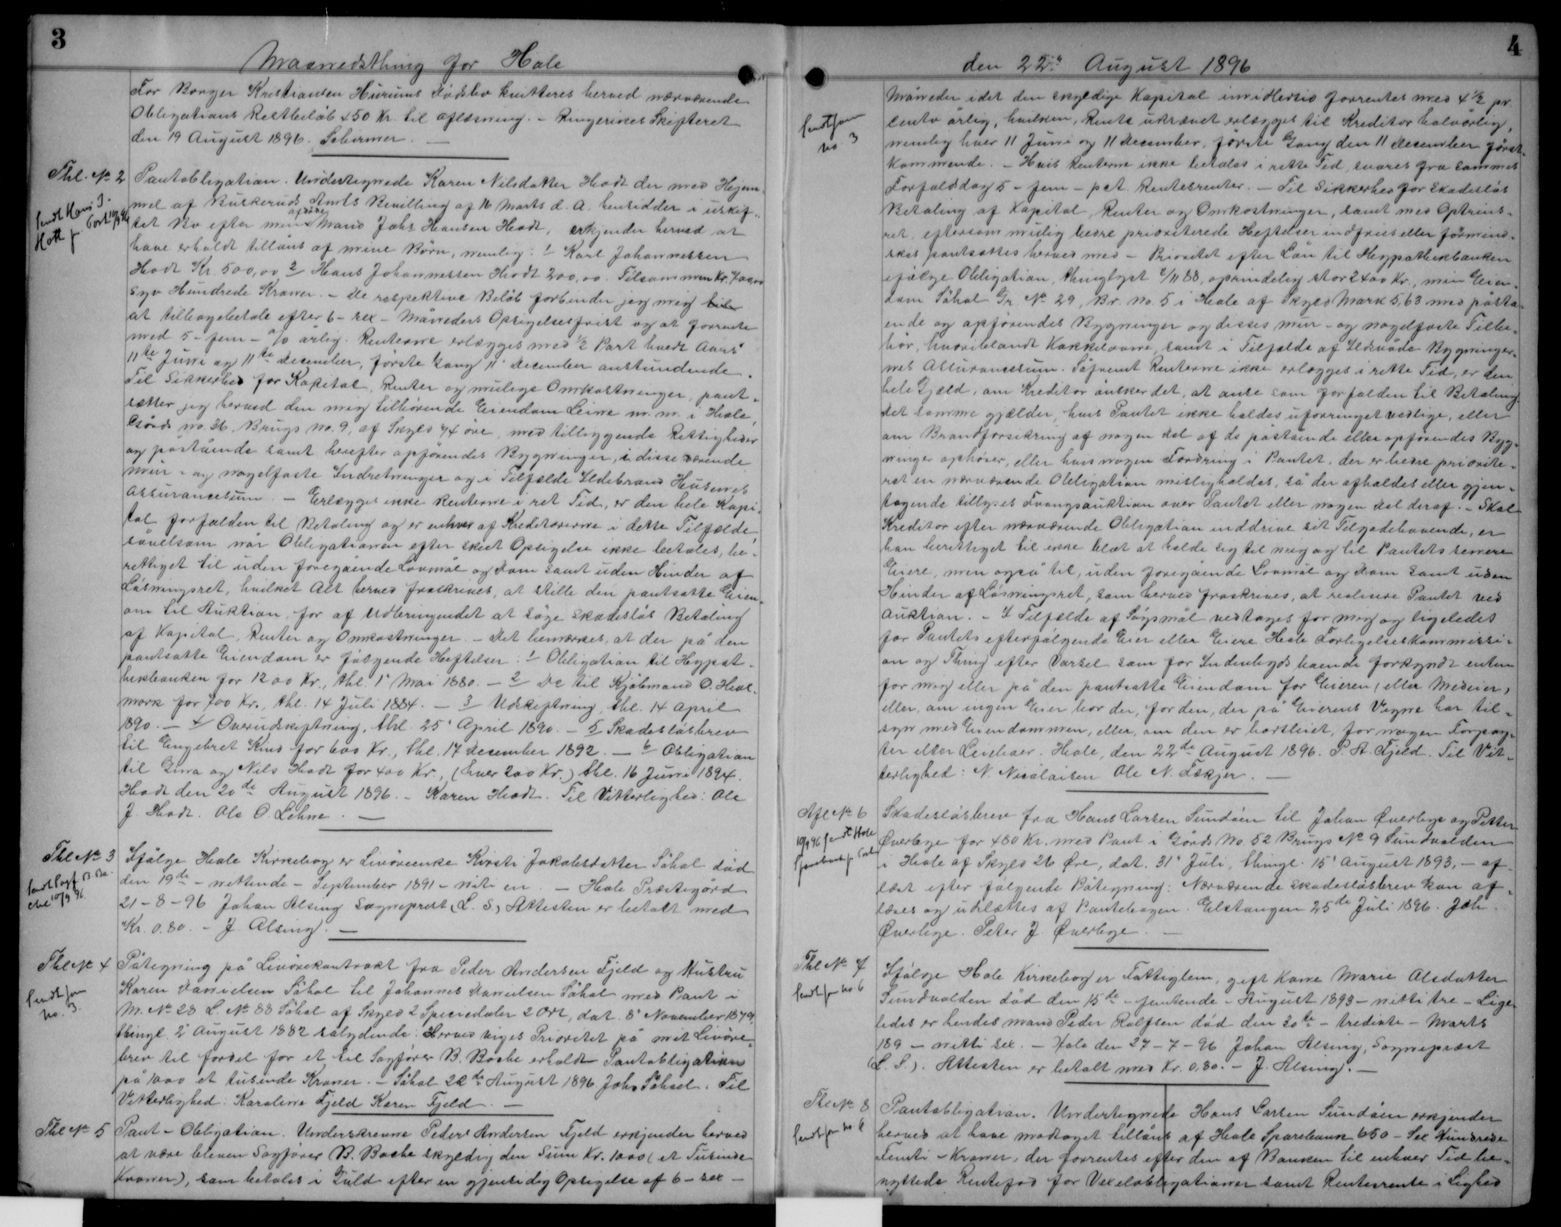 3
Maanedsthing for Hole
For Borger Kristiansen Hurums Dødsbo kvitteres herved nærværende
Obligations Restbeløb 450 Kr. til aflæsning. - Ringerikes Skifteret
den 19 August 1896. Schirmer. —
Thl. № 2
Pantobligation. Undertegnede Karen Nilsdatter Hadt der med Hjem-
mel af Buskeruds Amts Bevilling af 16 Marts d. A. hensidder i uskif-
tet Bo efter min afdøde Mand Johs Hansen Hadt, erkjender herved at
have erholdt tillåns af mine Børn, nemlig: 1 Karl Johannessen
Hadt Kr. 500,00 2 Hans Johannessen Hadt 200,00. Tilsammen Kr. 700,00
syv Hundrede Kroner. - De respektive Beløb forbinder jeg mig
at tilbagebetale efter 6 - sex - Måneders Opsigelsesfrist og at forrente
med 5 - fem - % årlig. Renterne erlægges med ½ Part hvert Aars
11te Juni og 11te December, første Gang 11 December anstundende.
Til Sikkerhed for Kapital, Renter og mulige Omkostninger, pant-
sætter jeg herved den mig tilhørende Eiendom Leine m. m. i Hole,
Gårds no. 36, Brugs no. 9, af Skyld 74 øre, med tilliggende Rettigheder
og påstående samt herefter opførendes Bygninger, i disse værende
mur- og nagelfaste Indretninger og i Tilfælde Ildebrand Husenes
Assurancesum. - Erlægges ikke Renterne i ret Tid, er den hele Kapi-
tal forfalden til Betaling og er enhver af Kreditorerne i dette Tilfælde,
såvelsom når Obligationen efter skeet Opsigelse ikke betales, be-
rettiget til uden foregående Lovmål og Dom samt uden Hinder af
Løsningsret, hvilket Alt herved fraskrives, at stille den pantsatte Eien-
om til Auktion for af Udbringendet at søge skadesløs Betaling
af Kapital, Renter og Omkostninger. - Det bemærkes, at der på den
pantsatte Eiendom er følgende Heftelser: 1 Obligation til Hypot-
hekbanken for 1200 Kr., thl. 1' Mai 1880. - 2 Do til Kjøbmand O.
mork for 700 Kr., thl. 14 Juli 1884. - 3 Udskiftning, thl. 14 April
1890. - 4 Overudskiftning, thl. 25' April 1890. - 5 Skadesløsbrev
til Engebret for 600 Kr., thl. 17 December 1892. - 6 Obligation
til Gina og Nils Hadt for 400 Kr., (hver 200 Kr.) thl. 16 Juni 1894.
Hadt den 20de August 1896. - Karen Hadt. Til Vitterlighed: Ole
J. Hadt. Ole O. Lehne. —
Thl № 3
Ifølge Hole Kirkebog er Livøreenke Kirsti Jakobsdatter Søhol død
den 19de - nittende - September 1891 - niti en. - Hole Præstegård
21-8-96 Johan Alsing Sogneprest (L. S.) Attesten er betalt med
Kr. 0.80. - J. Alsing. —
Thl № 4
Påtegning på Livørekontrakt fra Peder Andersen Fjeld og Hustru
Karen Danielsen Søhol til Johannes Danielsen Søhol med Pant i
M. № 28 L. № 88 Søhol af Skyld 2 Speciedaler 2 Ort, dat. 8' November 1879,
thingl. 2' August 1882 sålydende: Herved viges Prioritet på mit Livøre-
brev til fordel for et til Sagfører B. Bache erholdt Pantobligation
på 1000 et tusinde Kroner. - Søhol 22de August 1896 Johs Søhol. Til
Vitterlighed: Karoline Fjeld Karen Fjeld. —
Thl № 5
Pant-Obligation. Underskrevne Peder Andersen Fjeld erkjender herved
at være bleven Sagfører B. Bache skyldig den Sum Kr. 1000 (et Tusinde
Kroner), som betales i Guld efter en gjensidig Opsigelse af 6 - sex -
4
den 22de August 1896
sendt som
no 3
Måneder idet den skyldige Kapital imidlertid forrentes med 4½ pr
cento årlig, hvilken Rente ukrævet erlægges til Kreditor halvårlig,
nemlig hver 11 Juni og 11 December, første Gang den 11 December først-
kommende. - Hvis Renterne ikke betales i rette Tid, svares fra sammes
Forfaldsdag 5 - fem - pct. Rentesrenter. - Til Sikkerhed for skadesløs
Betaling af Kapital, Renter og Omkostninger, samt med Optrins-
ret, eftersom mulig bedre prioriterede Heftelser indfries eller formind-
skes pantsættes herved med - Prioritet efter Lån til Hypothekbanken
ifølge Obligation, thinglyst 2/11 88, oprindelig stor 2400 Kr., min Eien-
dom Søhol Gr. № 29, Br. no. 5 i Hole af Skyld Mark 5,63 med påstå-
ende og opførendes Bygninger og disses mur- og nagelfaste Tilbe-
hør, hvoriblandt Kakkelovne, samt i Tilfælde af Ildsvåde Bygninger-
nes Assurancesum. Såfremt Renterne ikke erlægges i rette Tid, er den
hele Gjæld, om Kreditor ønsker det, at anse som forfalden til Betaling.
Det samme gjælder, hvis Pantet ikke holdes uforringet vedlige, eller
om Brandforsikring af nogen del af de påstående eller opførendes Byg-
ninger ophører, eller hvis nogen Fordring i Pantet, der er bedre priorite-
ret en nærværende Obligation misligholdes, så der afholdes eller gjen-
tagende tillyses Tvangsauktion over Pantet eller nogen del deraf. - Skal
Kreditor efter nærværende Obligation inddrive sit Tilgodehavende, er
han berettiget til ikke blot at holde sig til mig og til Pantets senere
Eiere, men også til, uden foregående Lovmål og Dom samt uden
Hinder af Løsningsret, som herved fraskrives, at realisere Pantet ved
Auktion. - I Tilfælde af Søgsmål vedtages for mig og ligeledes
for Pantets efterfølgende Eier eller Eiere Hole Forligelseskommissi-
on og Thing efter Varsel som for Indenbygds boende forkyndt enten
for mig eller på den pantsatte Eiendom for Eieren (eller Medeier)
eller, om ingen Eier bor der, for den, der på Eierens Vegne har til-
syn med Eiendommen, eller, om den er bortleiet, for nogen Forpag-
ter eller Leieboer. Hole, den 22de August 1896. P. A. Fjeld. Til Vit-
terlighed: N. Nicolaisen Ole N. Eskjer. —
Afl № 6
Skadesløsbrev fra Hans Larsen Sundøen til Johan Øverbye og Petter
Øverbye for 480 Kr. med Pant i Gårds No 52 Brugs № 9 Sundvolden
i Hole af Skyld 26 Øre, dat. 31' Juli, thingl. 15' August 1893, - af-
læst efter følgende Påtegning: Nærværende skadesløsbrev kan af-
læses og udslettes af Pantebogen. Gilstangen 25de Juli 1896. Joh.
Øverbye. Peter J. Øverbye. —
Thl № 7
sendt som no 6
Ifølge Hole Kirkebog er Fattiglem, gift Kone Marie Olsdatter
Sundvolden død den 15de - femtende - August 1893 - nitti tre - Lige-
ledes er hendes mand Peder Rolfsen død den 30te - tredivte - Marts
189 - nitti sex. - Hole den 27-7-96 Johan Alsing, Sogneprest
(L. S.). Attesten er betalt med Kr. 0.80. - J. Alsing. —
Thl № 8
sendt som no 6
Pantobligation. Undertegnede Hans Larsen Sundøen erkjender
herved at have modtaget tillåns af Hole Sparebank 650 - Sex Hundrede
Femti - Kroner, der forrentes efter den af Banken til enhver Tid be-
nyttede Rentefod for Vexelobligationer samt Rentesrente i Lighed